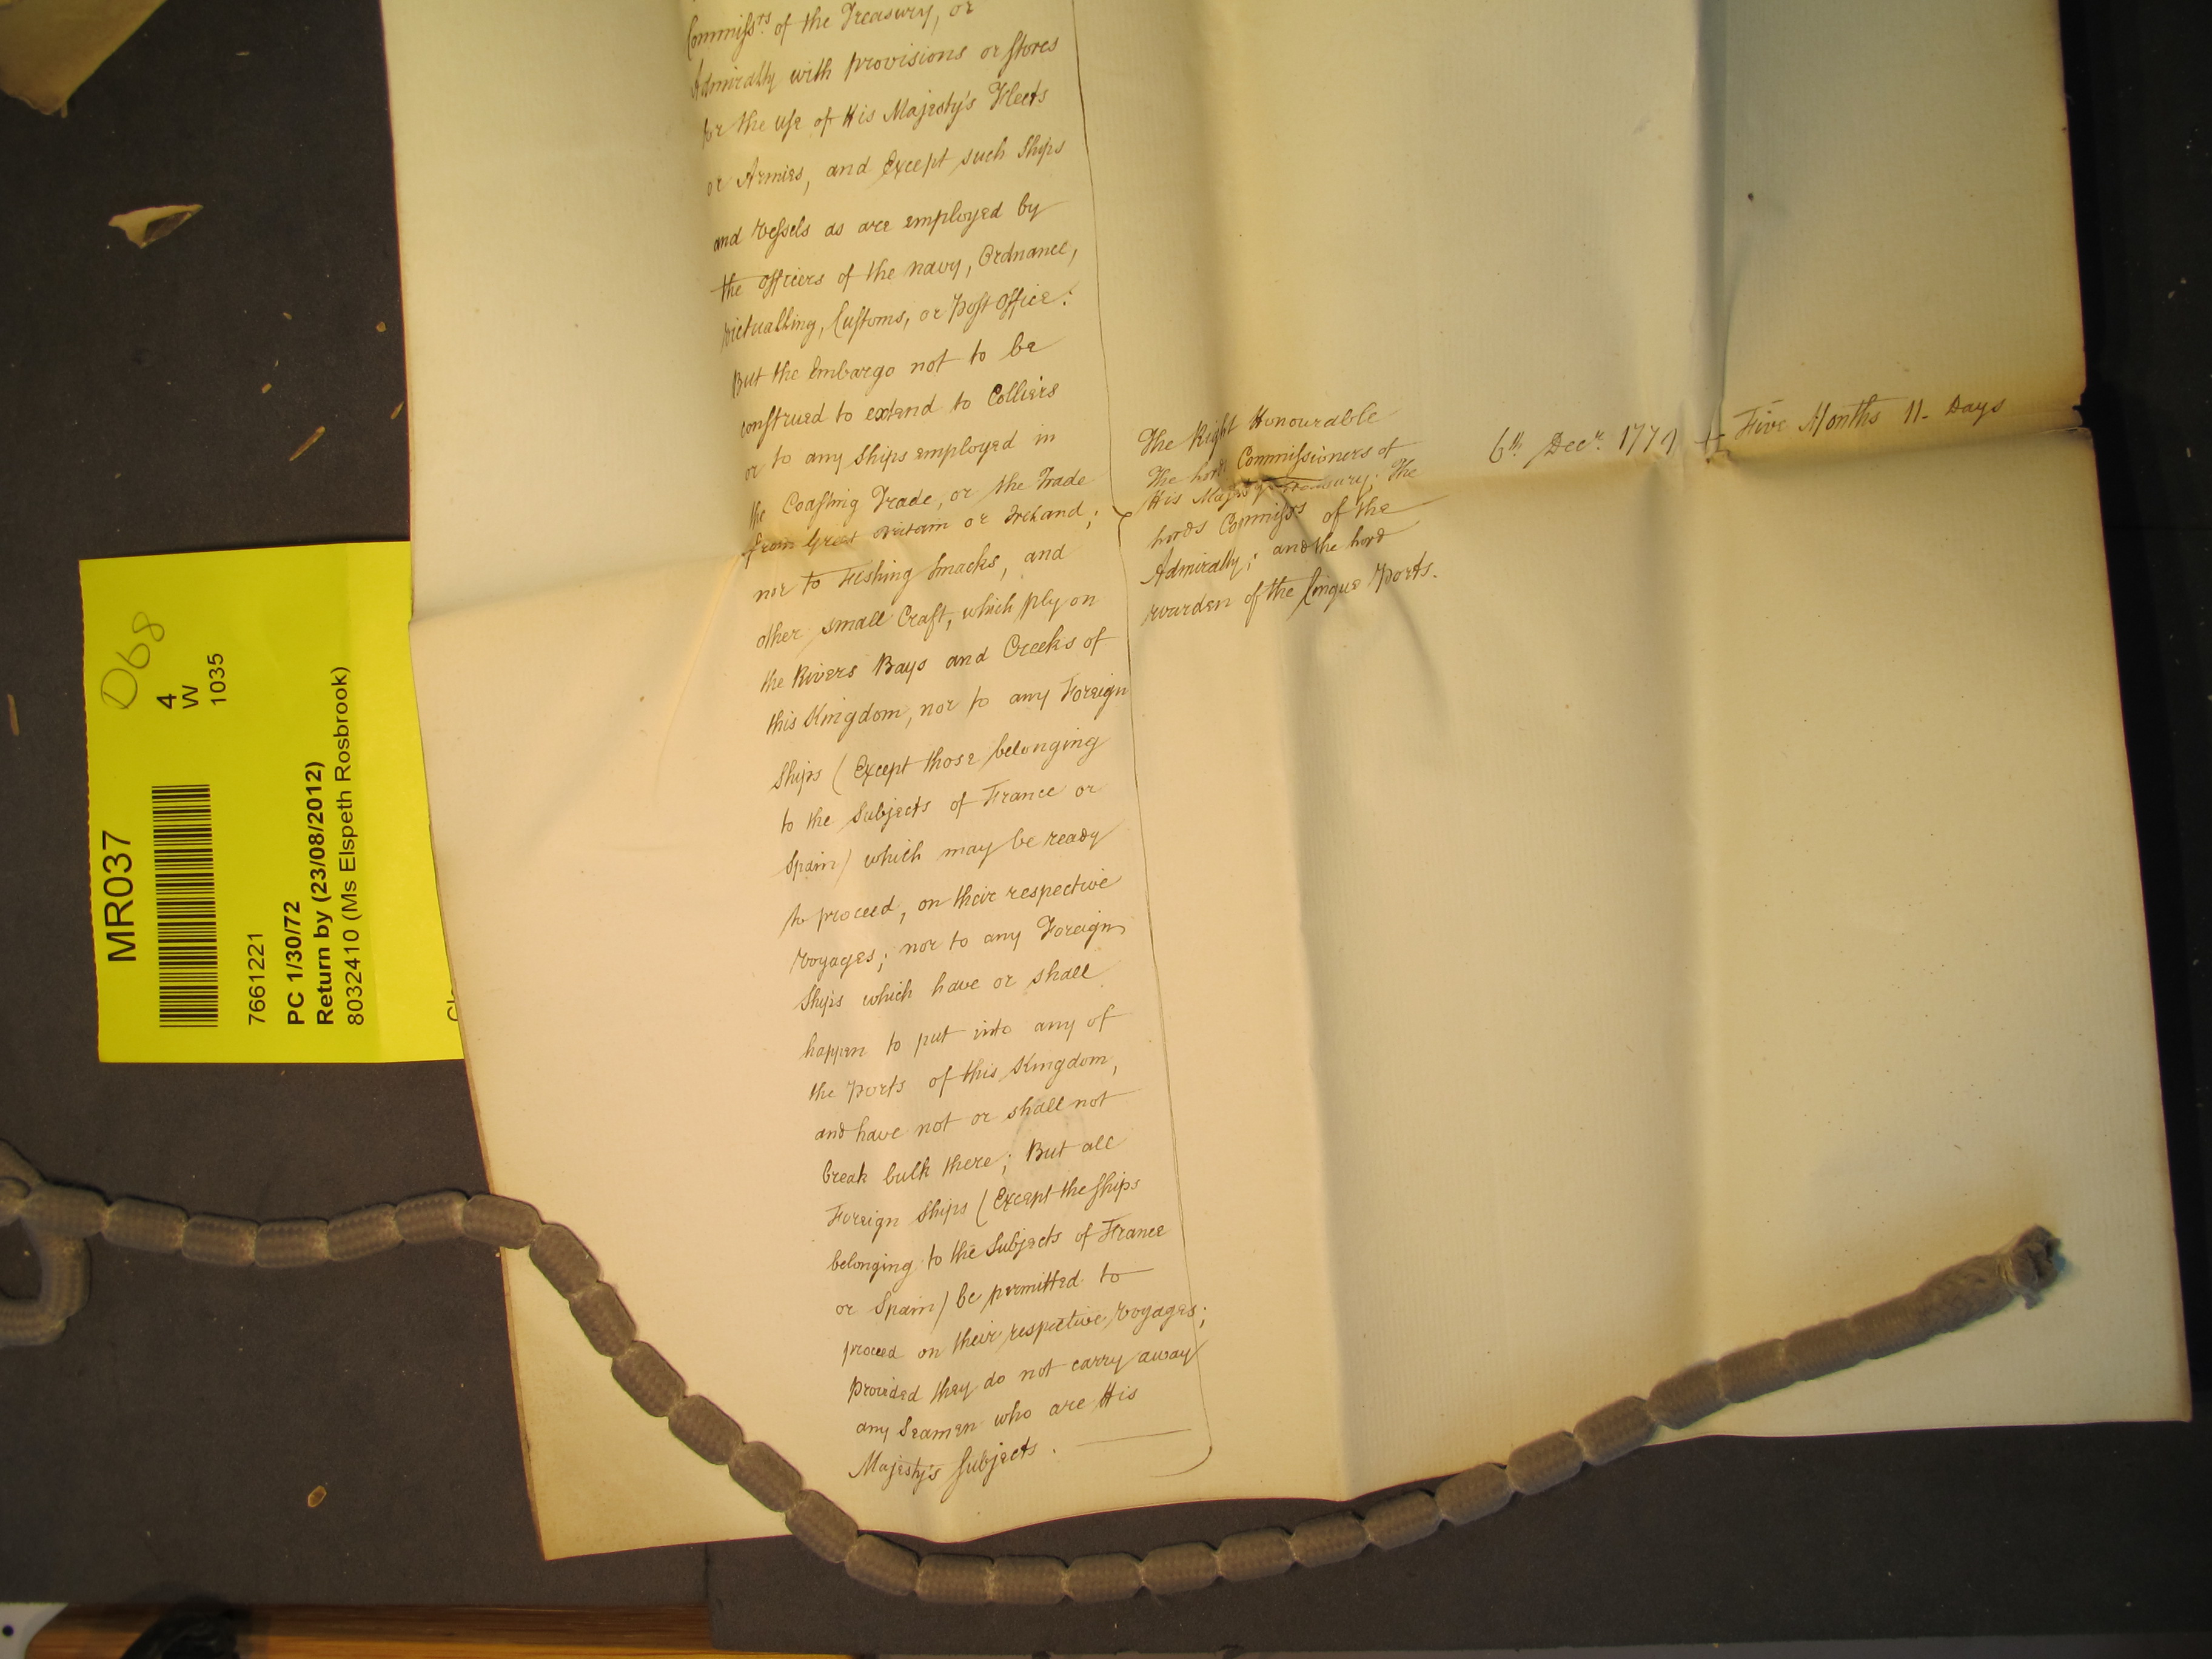 Commiss.rs of the Treasury, or
Admiralty with provisions or Stores
for the use of His Majesty's Fleets
or Armies, and Except such Ships
and Vessels as are employed by
the Officers of the Navy, Ordnance,
victualling, Customs, or Post Office:
But the Embargo not to be
construed to extend to Colliers
or to any Ships employed in
the Coasting Trade, or the Trade
from Great Britain or Ireland;
nor to Fishing Smacks, and
other small Craft, which ply on
the Rivers Bays and Creeks of
this Kingdom, nor to any Foreign
Ships (Except those belonging
to the Subjects of France or
Spain) which may be ready
to proceed, on their respective
Voyages; nor to any Foreign
Ships which have or shall
happen to put into any of
the Ports of this Kingdom,
and have not or shall not
break bulk there; But all
Foreign Ships (Except the Ships
belonging to the Subjects of France
or Spain) be permitted to
proceed on their respective Voyages;
Provided they do not carry away
any Seamen who are His
Majesty's Subjects.
The Right Honourable
The Lords Commissioners of
His Majesty's Treasury; The
Lords Commiss.rs of the
Admiralty; and the Lord
Warden of the Cinque Ports.
6th Decr. 1779
Five Months 11 Days
D68
4
W
1035
MR037
7661221
PC 1/30/72
Return by (23/08/2012)
80324410 (Ms Elspeth Rosbrook)